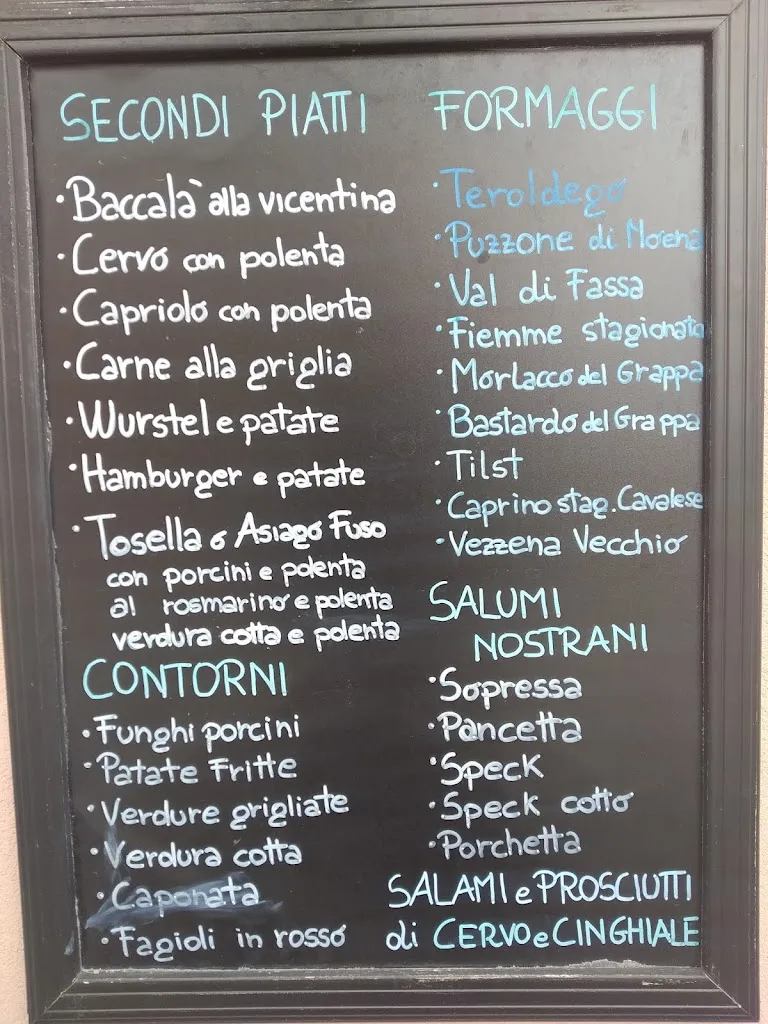 SECONDI PIATTI
• Baccalà alla vicentina
• Cervo con polenta
• Capriolo con polenta
• Carne alla griglia
• Wurstel e patate
• Hamburger e patate
• Tosella o Asiago Fuso
con porcini e polenta
al rosmarino e polenta
verdura cotta e polenta
CONTORNI
• Funghi porcini
• Patate Fritte
• Verdure grigliate
• Verdura cotta
• Caponata
• Fagioli in rosso
FORMAGGI
• Teroldego
• Puzzone di Moena
• Val di Fassa
• Fiemme stagionato
• Morlacco del Grappa
• Bastardo del Grappa
• Tilst
• Caprino stag. Cavalese
• Vezzena Vecchio
SALUMI
NOSTRANI
• Sopressa
• Pancetta
• Speck
• Speck cotto
• Porchetta
SALAMI e PROSCIUTTI
di CERVO e CINGHIALE